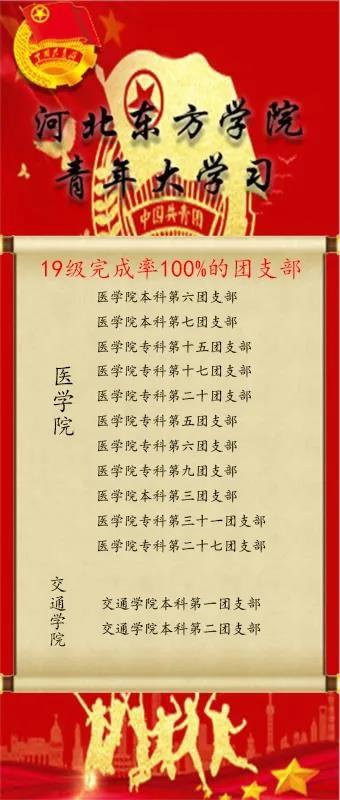 中国共青团
河北东方学院
青年大学习
中国共青团
19级完成率100%的团支部
医学院
医学院本科第六团支部
医学院本科第七团支部
医学院专科第十五团支部
医学院专科第十七团支部
医学院专科第二十团支部
医学院专科第五团支部
医学院专科第六团支部
医学院专科第九团支部
医学院本科第三团支部
医学院专科第三十一团支部
医学院专科第二十七团支部
交通学院
交通学院本科第一团支部
交通学院本科第二团支部